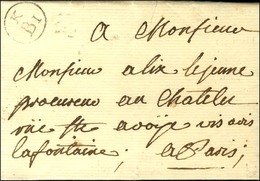 K
B1
A Monsieur
Monsieur alix lejeune
procureur au Chatelet
rüe Ste avoÿe vis avis
lafontaine;
a Paris;